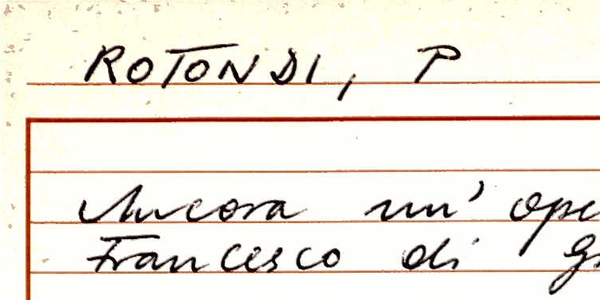 ROTONDI, P
Ancora un' ope
Francesco di G